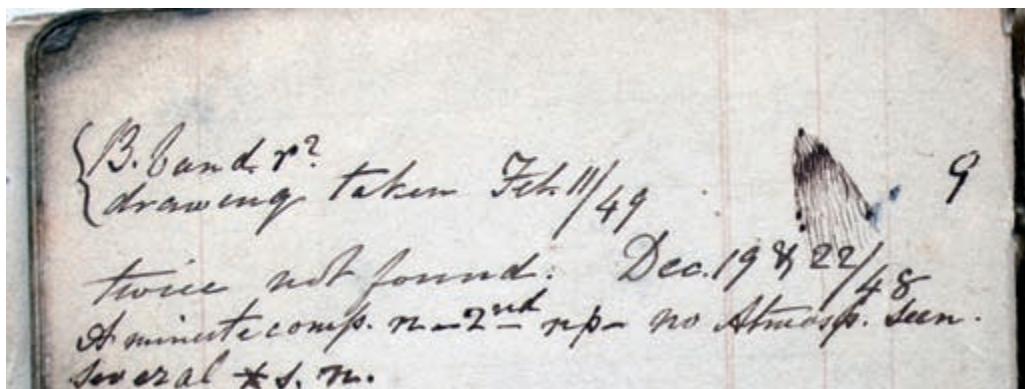 B. band. r?
drawing taken Feb. 11/49
9
twice not found. Dec. 19 & 22/48
A minute comp. n – 2nd np – no Atmosp. seen.
several * s. n.